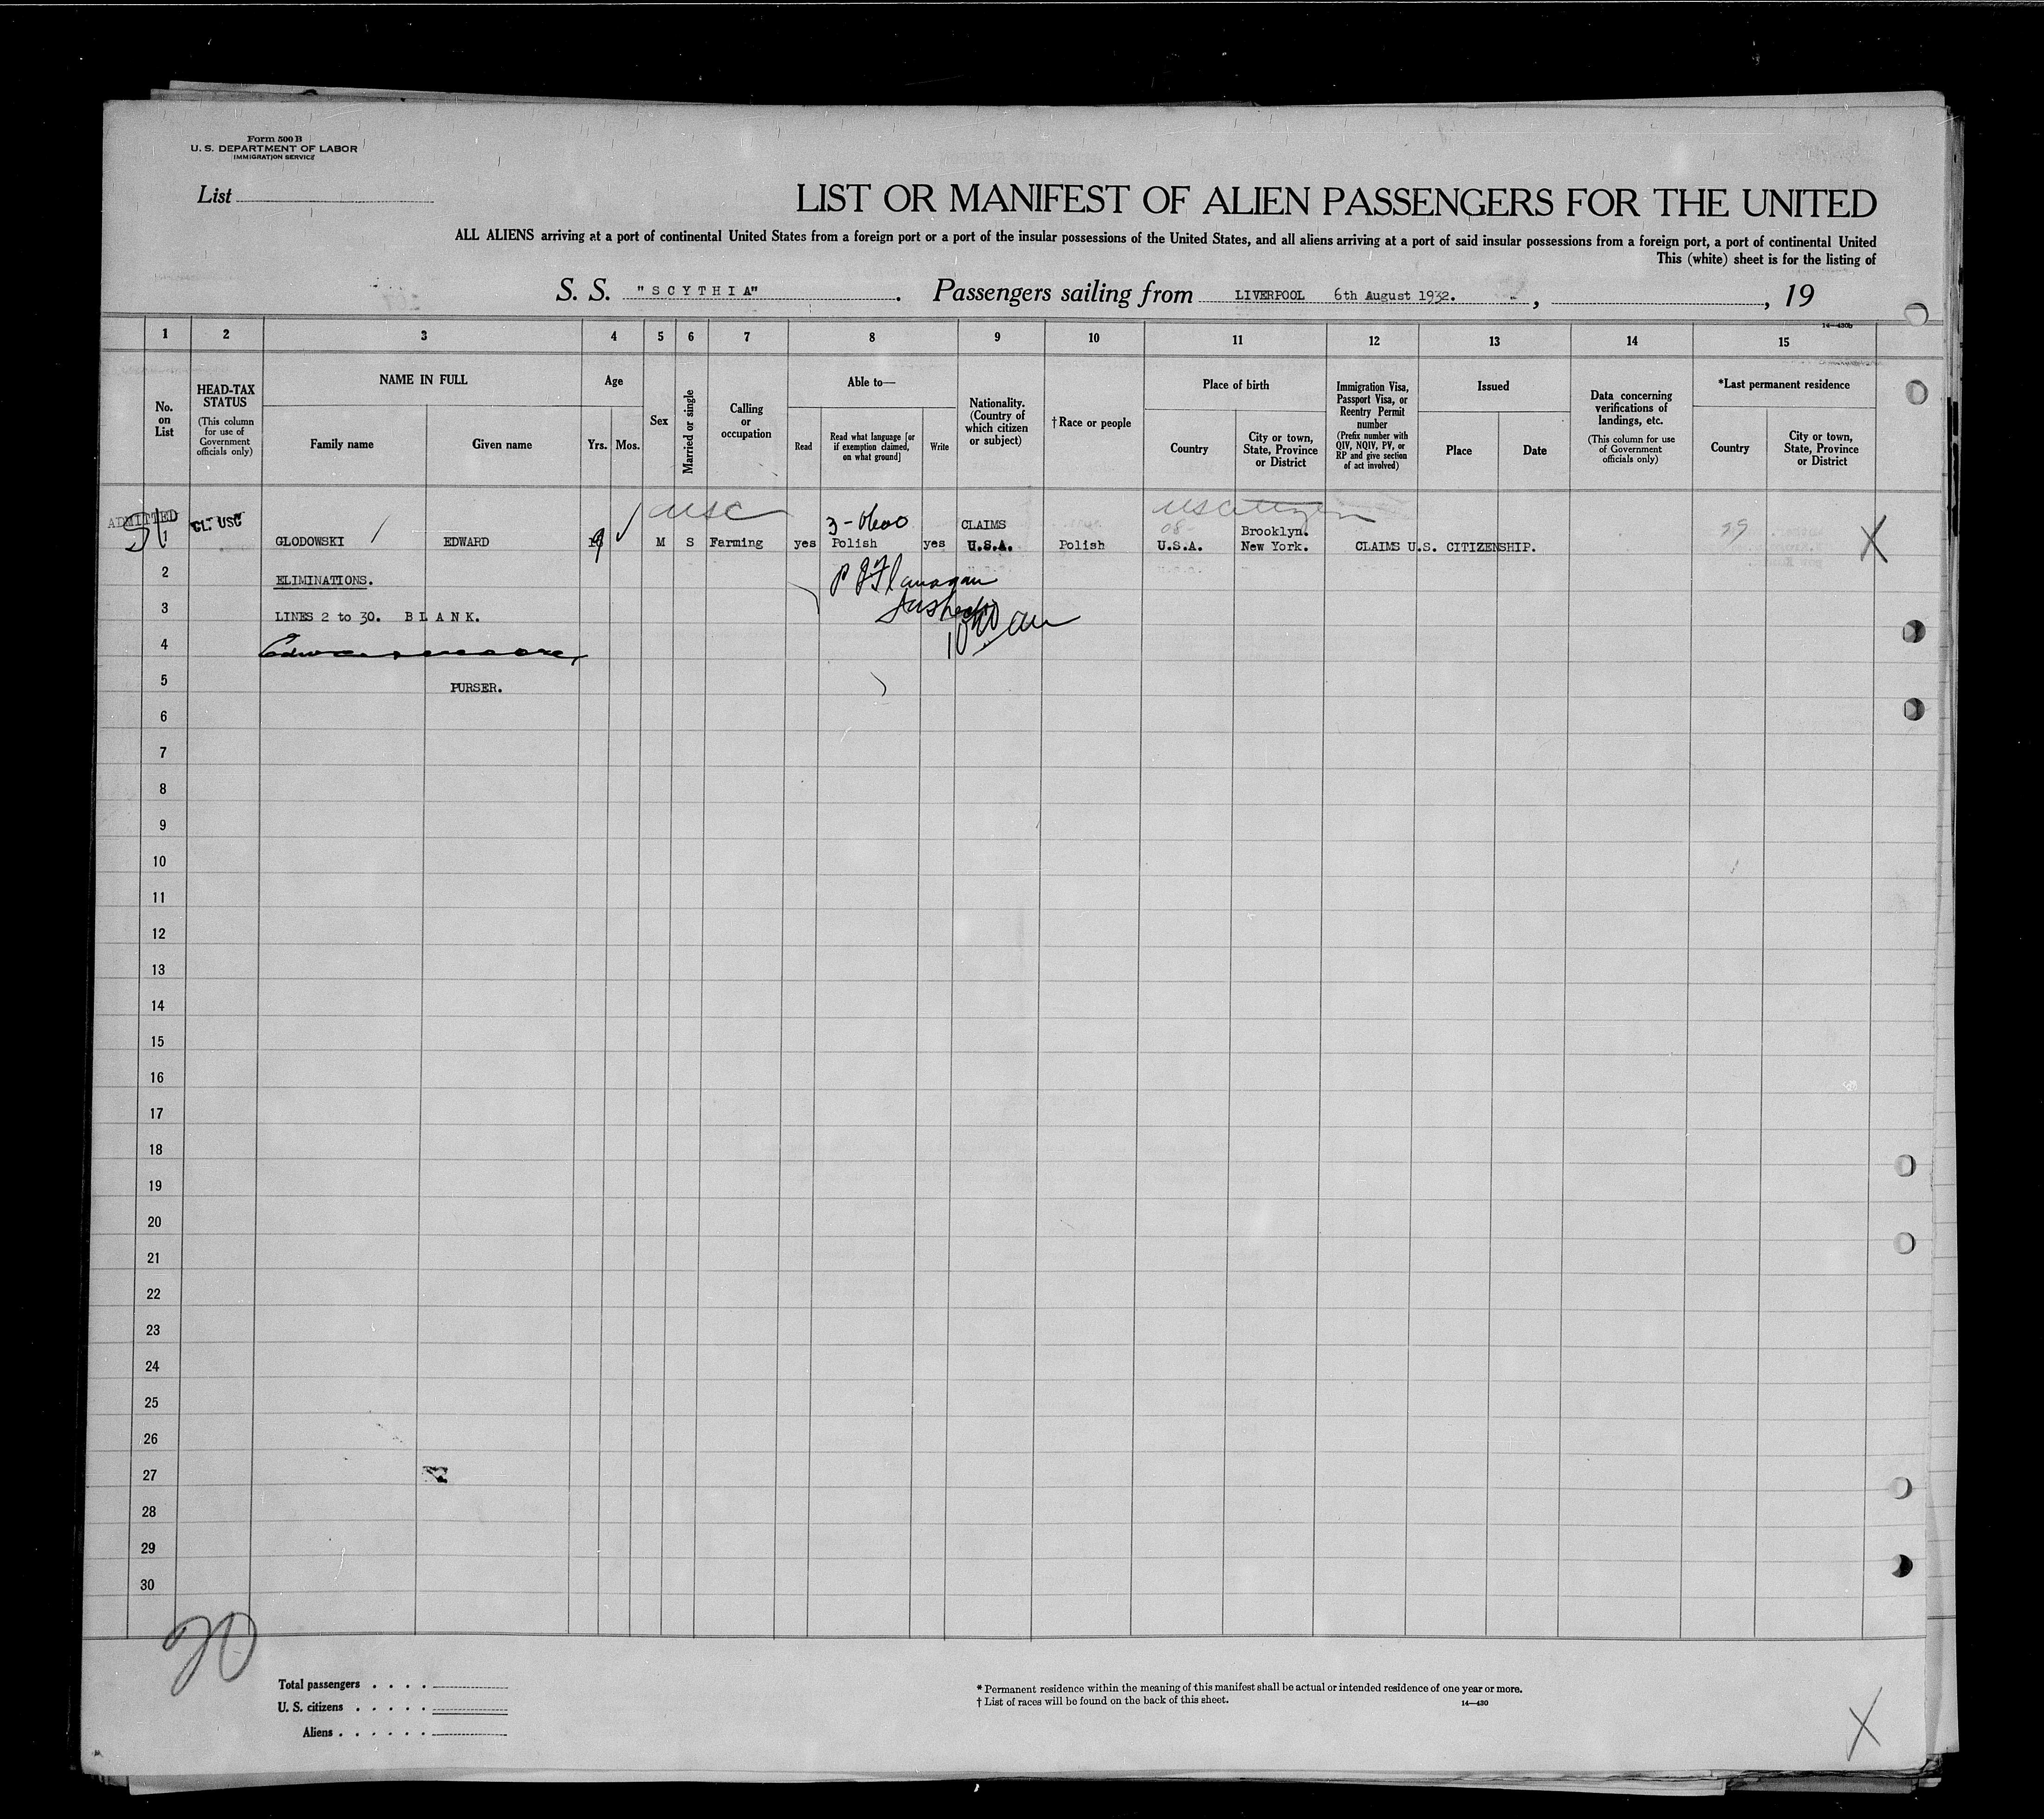 Form 500 B
U. S. DEPARTMENT OF LABOR
IMMIGRATION SERVICE
List
LIST OR MANIFEST OF ALIEN PASSENGERS FOR THE UNITED
ALL ALIENS arriving at a port of continental United States from a foreign port or a port of the insular possessions of the United States, and all aliens arriving at a port of said insular possessions from a foreign port, a port of continental United
This (white) sheet is for the listing of
S. S. "SCYTHIA". Passengers sailing from LIVERPOOL 6th August 1932. , , 19
14—430b
1 2 3 4 5 6 7 8 9 10 11 12 13 14 15
No. on List
HEAD-TAX STATUS
(This column for use of Government officials only)
NAME IN FULL
Family name
Given name
Age
Yrs.
Mos.
Sex
Married or single
Calling or occupation
Able to—
Read
Read what language [or if exemption claimed, on what ground]
Write
Nationality. (Country of which citizen or subject)
†Race or people
Place of birth
Country
City or town, State, Province or District
Immigration Visa, Passport Visa, or Reentry Permit number
(Prefix number with QIV, NQIV, PV, or RP and give section of act involved)
Issued
Place
Date
Data concerning verifications of landings, etc.
(This column for use of Government officials only)
*Last permanent residence
Country
City or town, State, Province or District
ADMITTED
CL. USC
USC
US Citizen
1 GLODOWSKI EDWARD M S Farming yes Polish yes CLAIMS U.S.A. Polish U.S.A. Brooklyn. New York. CLAIMS U.S. CITIZENSHIP.
X
2 ELIMINATIONS.
P J Flanagan
3 LINES 2 to 30. BLANK.
Inspector
4
5 PURSER.
6
7
8
9
10
11
12
13
14
15
16
17
18
19
20
21
22
23
24
25
26
27
28
29
30
20
Total passengers . . . .
U. S. citizens . . . . .
Aliens . . . . . .
* Permanent residence within the meaning of this manifest shall be actual or intended residence of one year or more.
† List of races will be found on the back of this sheet.
14—430
X